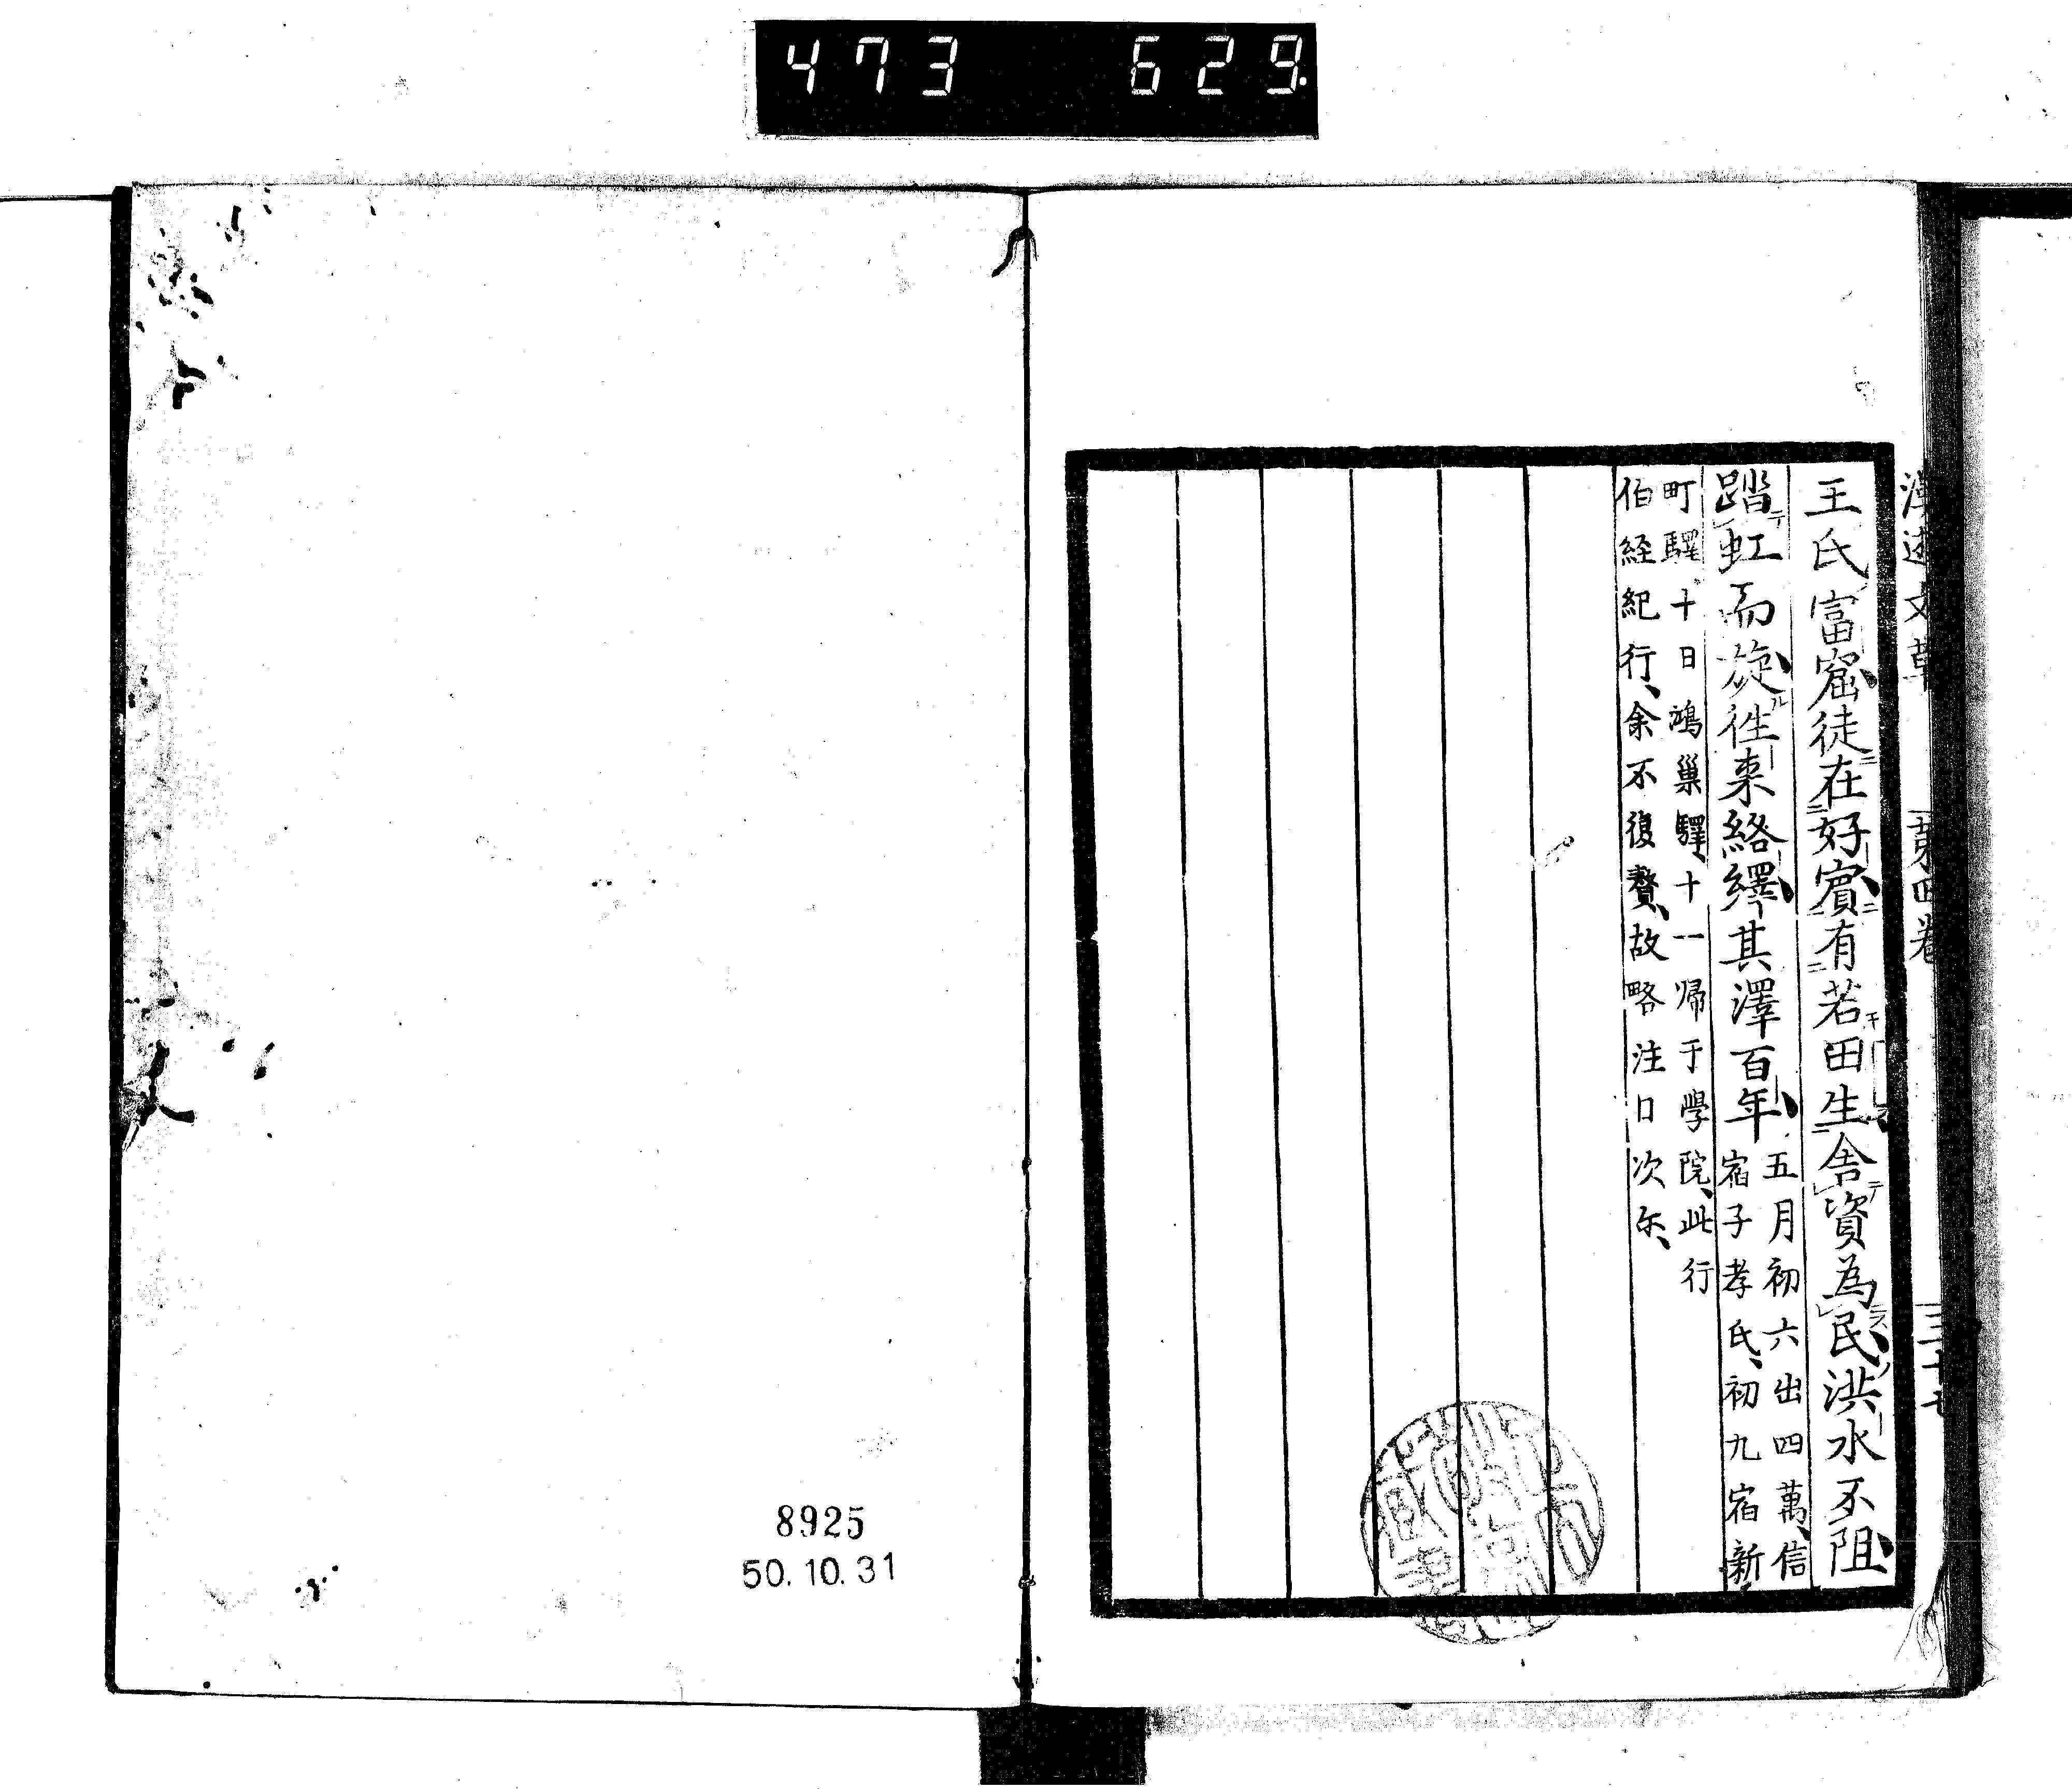 473 629.
文草 第四卷 三十七
王氏富窟、徒在好賓、有若田生、舎資為民、洪水不阻、
踏虹而旋、徃来絡繹、其澤百年、
五月初六出四萬、信
宿子孝氏、初九宿新
町驛、十日鴻巣驛、十一帰于學院、此行
伯経紀行、余不復贅、故略注日次尓、
8925
50.10.31